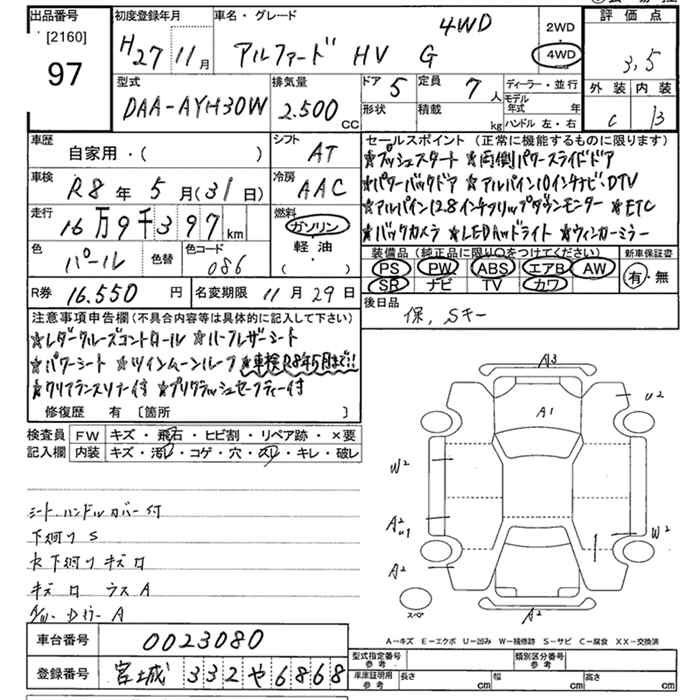 出品番号 初度登録年月 車名・グレード 評価点
[2160]
97
H27 11月 アルファード HV G 4WD
2WD
4WD
3,5
型式 排気量 ドア 5 定員 7人 ディーラー・並行 外装 内装
DAA-AYH30W 2.500CC 形状 積載 kg モデル年式 年
ハンドル 左・右 C B
車歴 自家用・( ) シフト AT
セールスポイント (正常に機能するものに限ります)
★プッシュスタート ★両側パワースライドドア
車検 R8年5月(31日) 冷房 AAC
★パワーバックドア ★アルパイン10インチナビ・DTV
走行 16万9千397km 燃料 ガソリン
軽油
・( )
★アルパイン12.8インチフリップダウンモニター ★ETC
★バックカメラ ★LEDヘッドライト ★ウィンカーミラー
色 パール 色替 色コード 086
装備品 (純正品に限り○をつけてください) 新車保証書
PS PW ABS エアB AW 有・無
SR ナビ TV カワ
R券 16.550円 名変期限 11月29日
後日品
保、Sキー
注意事項申告欄 (不具合内容等は具体的に記入して下さい)
★レーダークルーズコントロール ★ハーフレザーシート
★パワーシート ★ツインムーンルーフ ★車検R8年5月まで!!
★クリアランスソナー付 ★プリクラッシュセーフティー付
修復歴 有 〔箇所 〕
検査員 FW キズ・飛石・ヒビ割・リペア跡・×要
記入欄 内装 キズ・汚レ・コゲ・穴・スレ・キレ・破レ
シート、ハンドルカバー付
下廻りS
下廻りキズ
キズ ウスA
A3
A1
U2
W2
A2
U1
W2
A2
A2
スペア
A-キズ E-エクボ U-凹み W-補修跡 S-サビ C-腐食 XX-交換済
車台番号 0023080
登録番号 宮城 332 や 6868
型式指定番号 参考 類別区分番号 参考
車庫証明用 参考 長さ cm 幅 cm 高さ cm